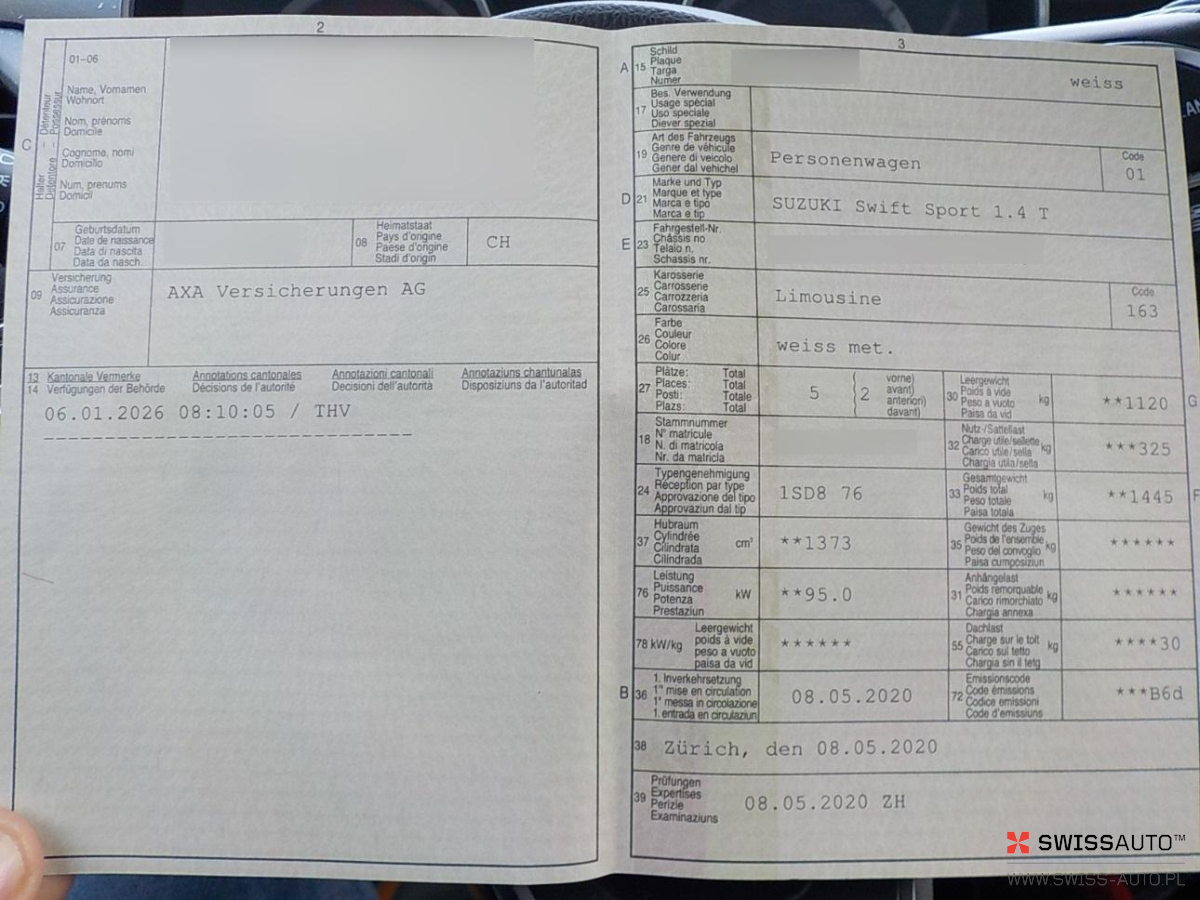 2
01-06
Name, Vornamen
Wohnort
Nom, prénoms
Domicile
Cognome, nomi
Domicilio
Num, prenums
Domicil
C
Halter – Détenteur
Detentore – Possessur
07
Geburtsdatum
Date de naissance
Data di nascita
Data da nasch.
08
Heimatstaat
Pays d'origine
Paese d'origine
Stadi d'origin
CH
09
Versicherung
Assurance
Assicurazione
Assicuranza
AXA Versicherungen AG
13 Kantonale Vermerke Annotations cantonales Annotazioni cantonali Annotaziuns chantunalas
14 Verfügungen der Behörde Décisions de l'autorité Decisioni dell'autorità Disposiziuns da l'autoritad
06.01.2026 08:10:05 / THV
3
A
15
Schild
Plaque
Targa
Numer
weiss
17
Bes. Verwendung
Usage spécial
Uso speciale
Diever spezial
19
Art des Fahrzeugs
Genre de véhicule
Genere di veicolo
Gener dal vehichel
Personenwagen
Code
01
D
21
Marke und Typ
Marque et type
Marca e tipo
Marca e tip
SUZUKI Swift Sport 1.4 T
E
23
Fahrgestell-Nr.
Châssis no
Telaio n.
Schassis nr.
25
Karosserie
Carrosserie
Carrozzeria
Carossaria
Limousine
Code
163
26
Farbe
Couleur
Colore
Colur
weiss met.
27
Plätze: Total
Places: Total
Posti: Totale
Plazs: Total
5
2
vorne)
avant)
anteriori)
davant)
30
Leergewicht
Poids à vide
Peso a vuoto
Paisa da vid
kg
**1120
G
18
Stammnummer
N° matricule
N. di matricola
Nr. da matricla
32
Nutz-/Sattellast
Charge utile/sellette
Carico utile/sella
Chargia utila/sella
kg
***325
24
Typengenehmigung
Réception par type
Approvazione del tipo
Approvaziun dal tip
1SD8 76
33
Gesamtgewicht
Poids total
Peso totale
Paisa totala
kg
**1445
F
37
Hubraum
Cylindrée
Cilindrata
Cilindrada
cm³
**1373
35
Gewicht des Zuges
Poids de l'ensemble
Peso del convoglio
Paisa cumposiziun
kg
******
76
Leistung
Puissance
Potenza
Prestaziun
kW
**95.0
31
Anhängelast
Poids remorquable
Carico rimorchiato
Chargia annexa
kg
******
78 kW/kg
Leergewicht
poids à vide
peso a vuoto
paisa da vid
******
55
Dachlast
Charge sur le toit
Carico sul tetto
Chargia sin il tetg
kg
****30
B
36
1. Inverkehrsetzung
1re mise en circulation
1a messa in circolazione
1. entrada en circulaziun
08.05.2020
72
Emissionscode
Code émissions
Codice emissioni
Code d'emissiuns
***B6d
38
Zürich, den 08.05.2020
39
Prüfungen
Expertises
Perizie
Examinaziuns
08.05.2020 ZH
SWISSAUTO™
WWW.SWISS-AUTO.PL